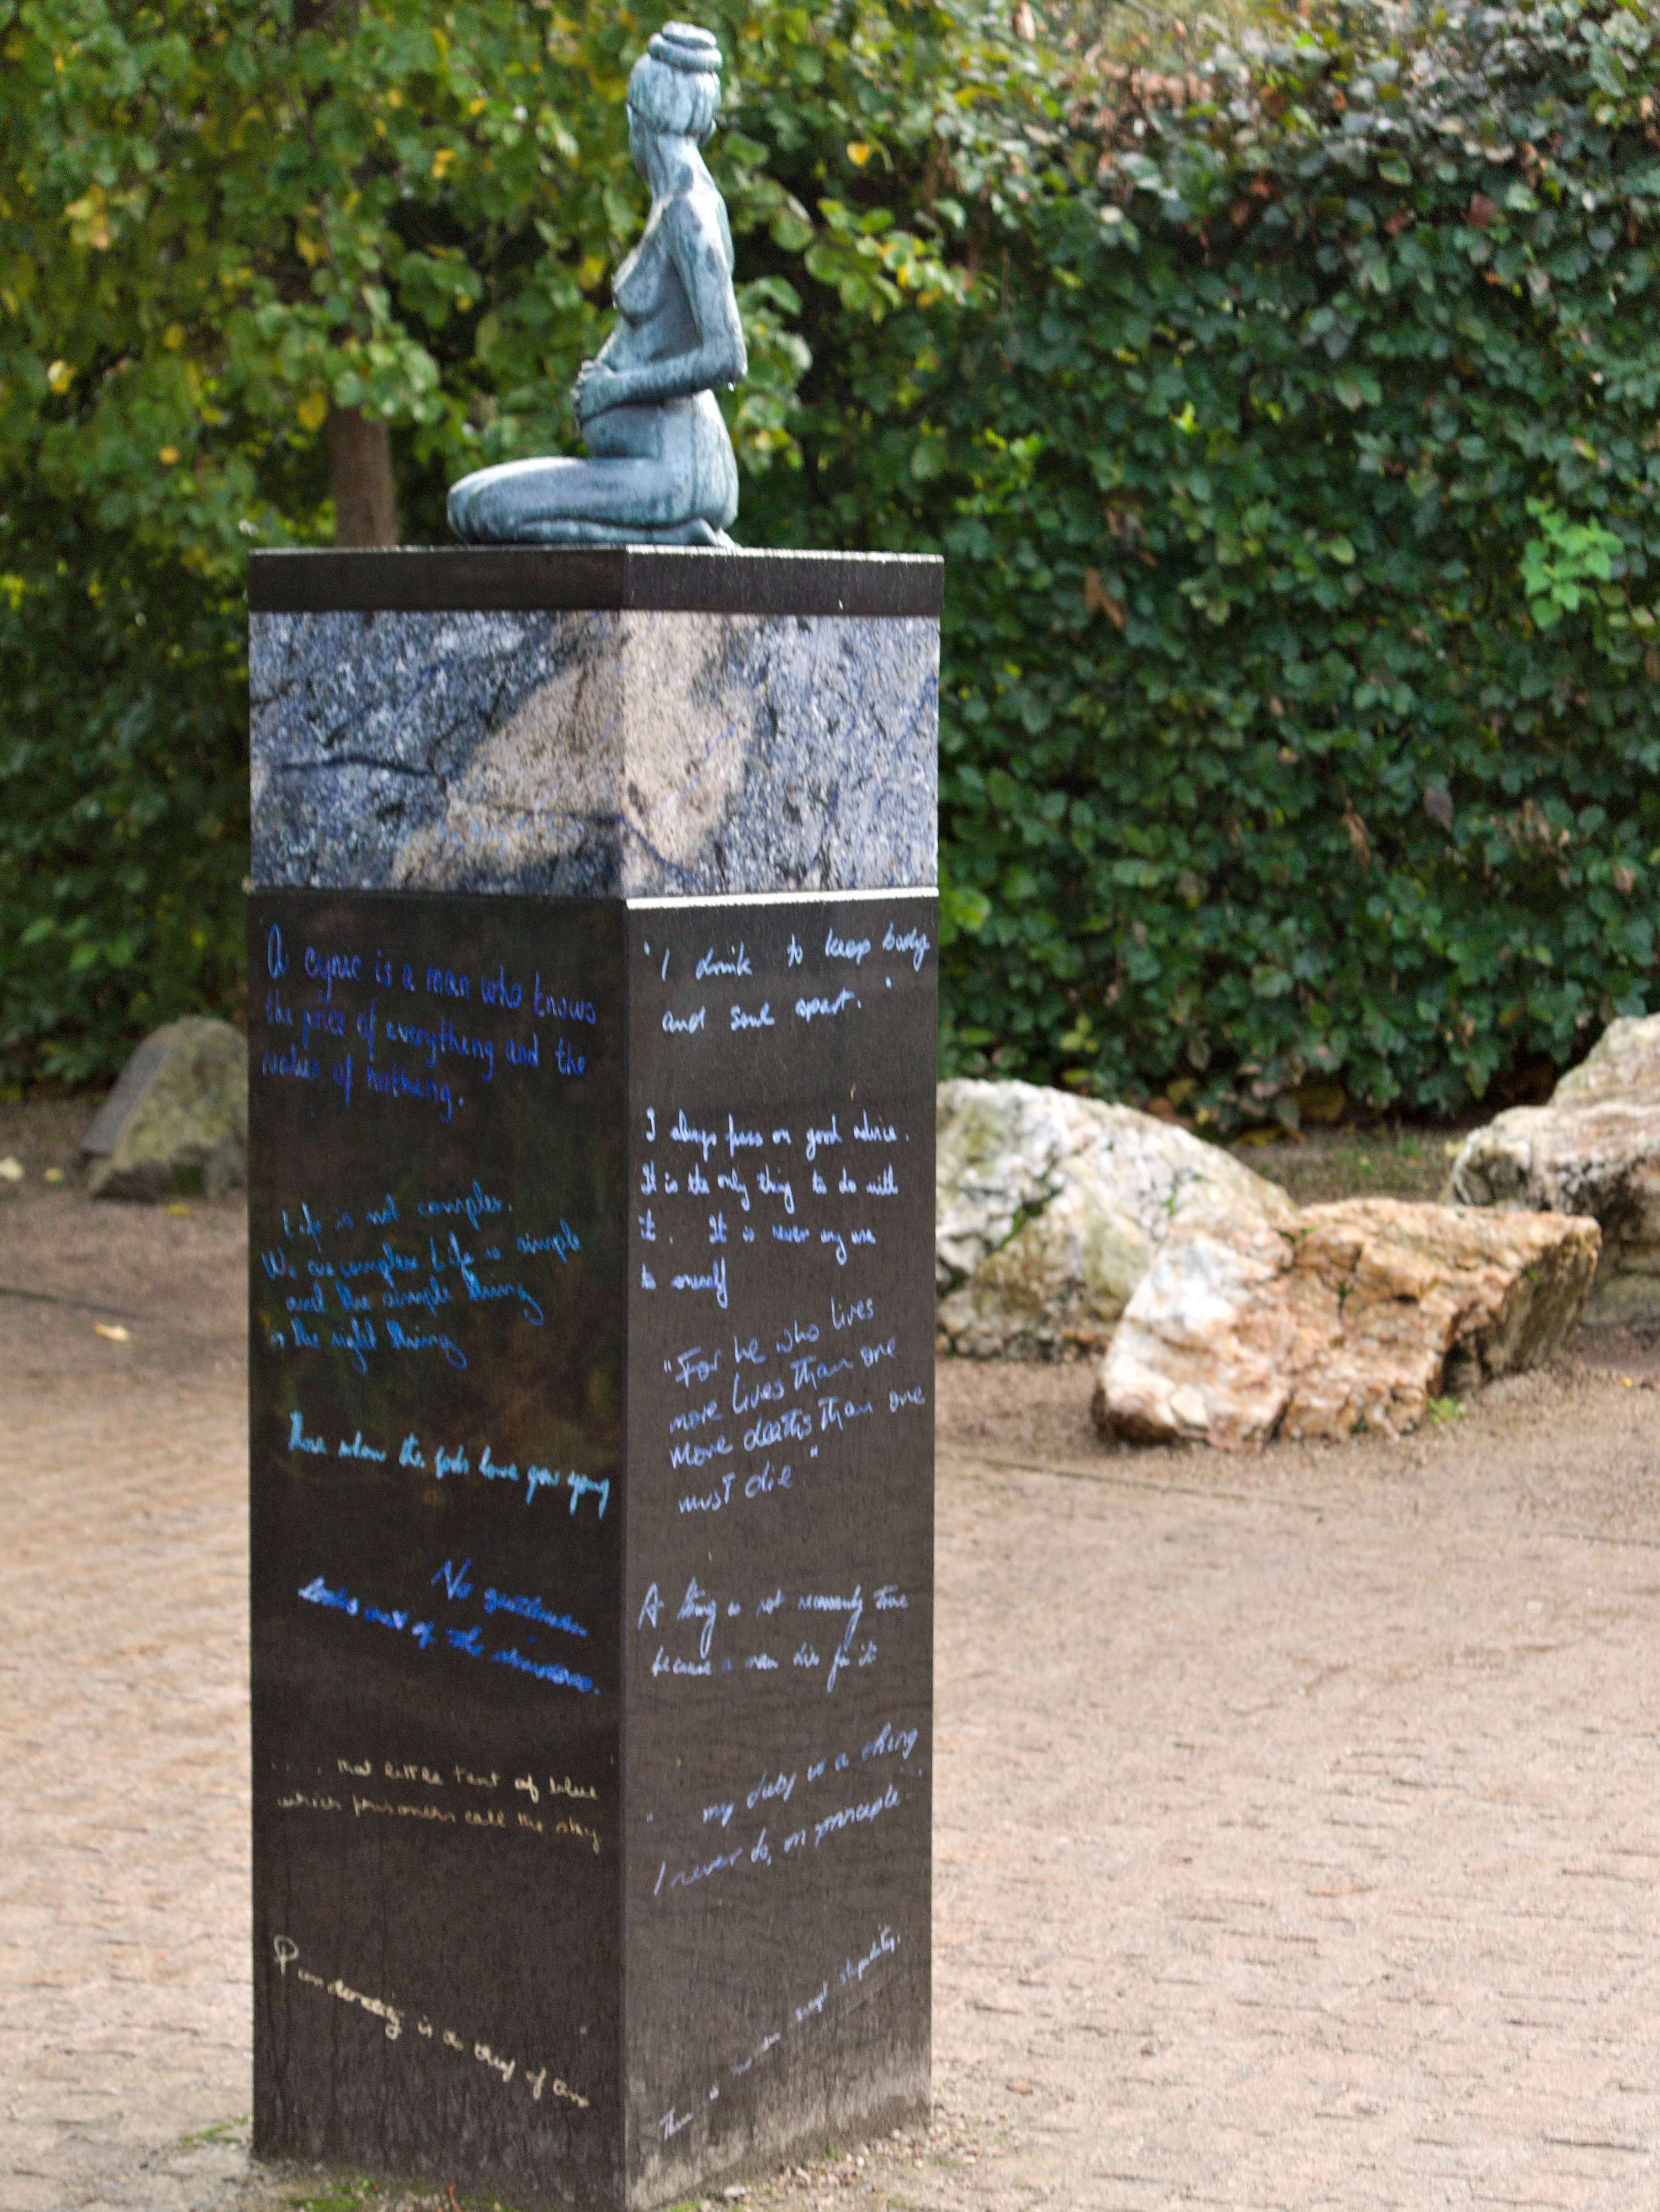 A cynic is a man who knows
the price of everything and the
value of nothing.
Life is not complex.
We are complex. Life is simple
and the simple thing
is the right thing
Those whom the gods love grow young
No gentleman
looks out of the window.
..... that little tent of blue
which prisoners call the sky
Punctuality is a thief of time
"I drink to keep body
and soul apart."
I always pass on good advice.
It is the only thing to do with
it. It is never any use
to oneself
"For he who lives
more lives than one
more deaths than one
must die"
A thing is not necessarily true
because a man dies for it
" my duty is a thing
I never do, on principle."
There is no sin except stupidity.